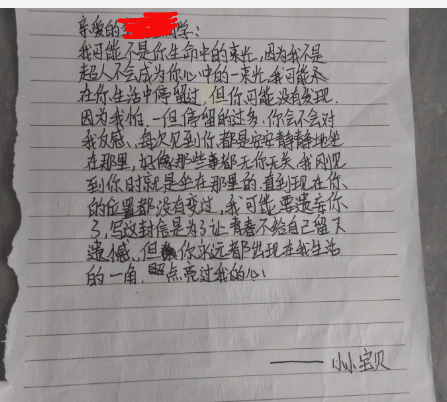 亲爱的同学:
我可能不是你生命中的束光,因为我不是
超人不会成为你心中的一束光,我可能
在你生活中停留过,但你可能没有发现.
因为我怕,一但停留的过多.你会不会对
我反感、每次见到你.都是安安静静地坐
在那里,好像那些事都无你无关,我刚见
到你时就是坐在那里的.直到现在你、
的位置都没有变过,我可能要遗弃你
了,写这封信是为了让青春不给自己留下
遗憾、但你永远都出现在我生活
的一角,照点亮过我的心
——小小宝贝